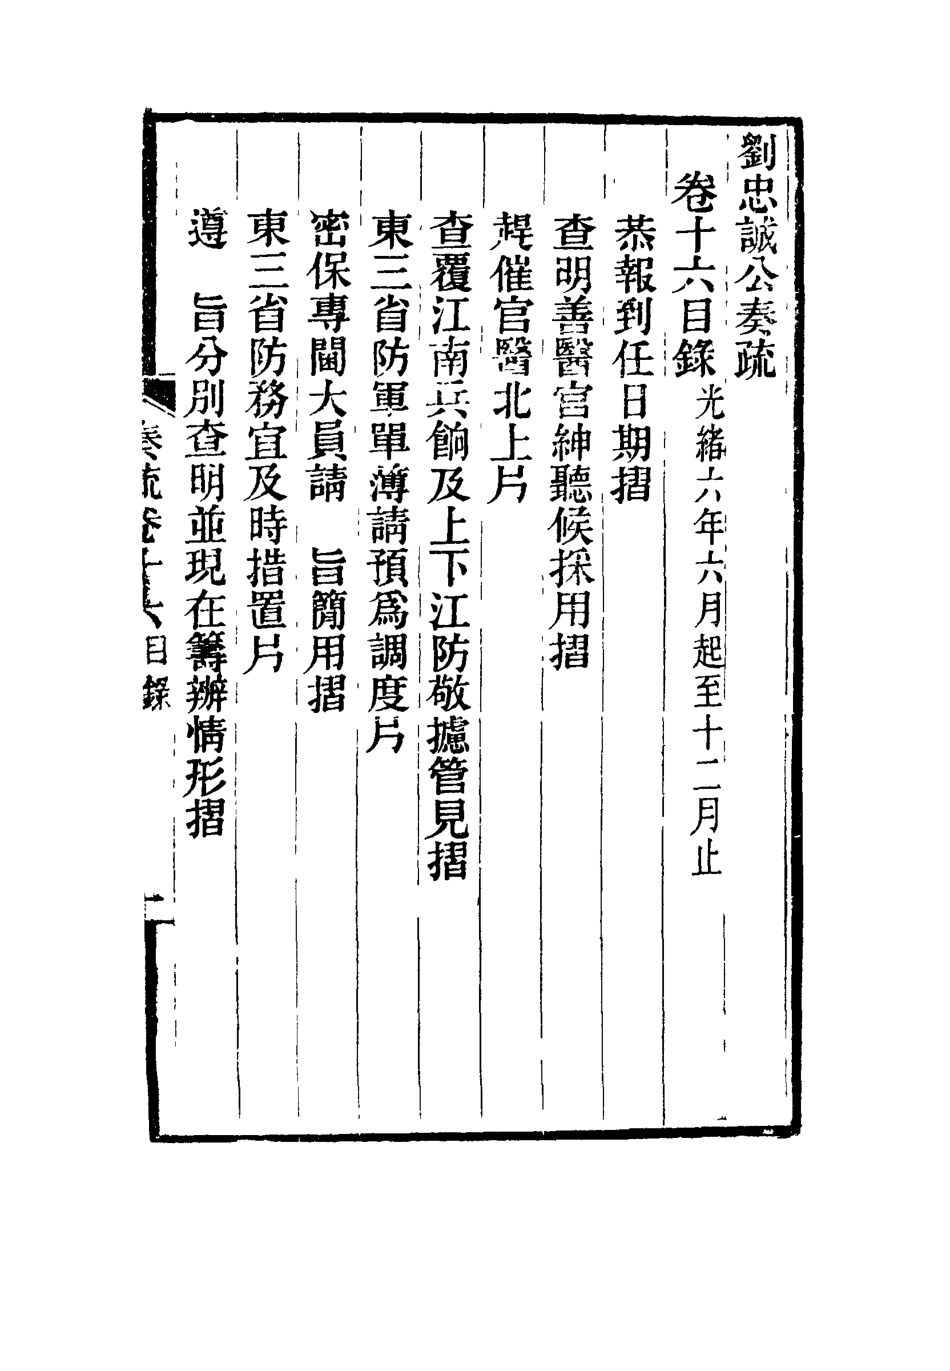 劉忠誠公奏疏
卷十六目錄光緒六年六月起至十二月止
恭報到任日期摺
查明善醫官紳聽候採用摺
趕催官醫北上片
查覆江南兵餉及上下江防敬攄管見摺
東三省防軍單薄請預爲調度片
密保專閫大員請　旨簡用摺
東三省防務宜及時措置片
遵　旨分別查明並現在籌辦情形摺
奏疏卷十六目錄　一